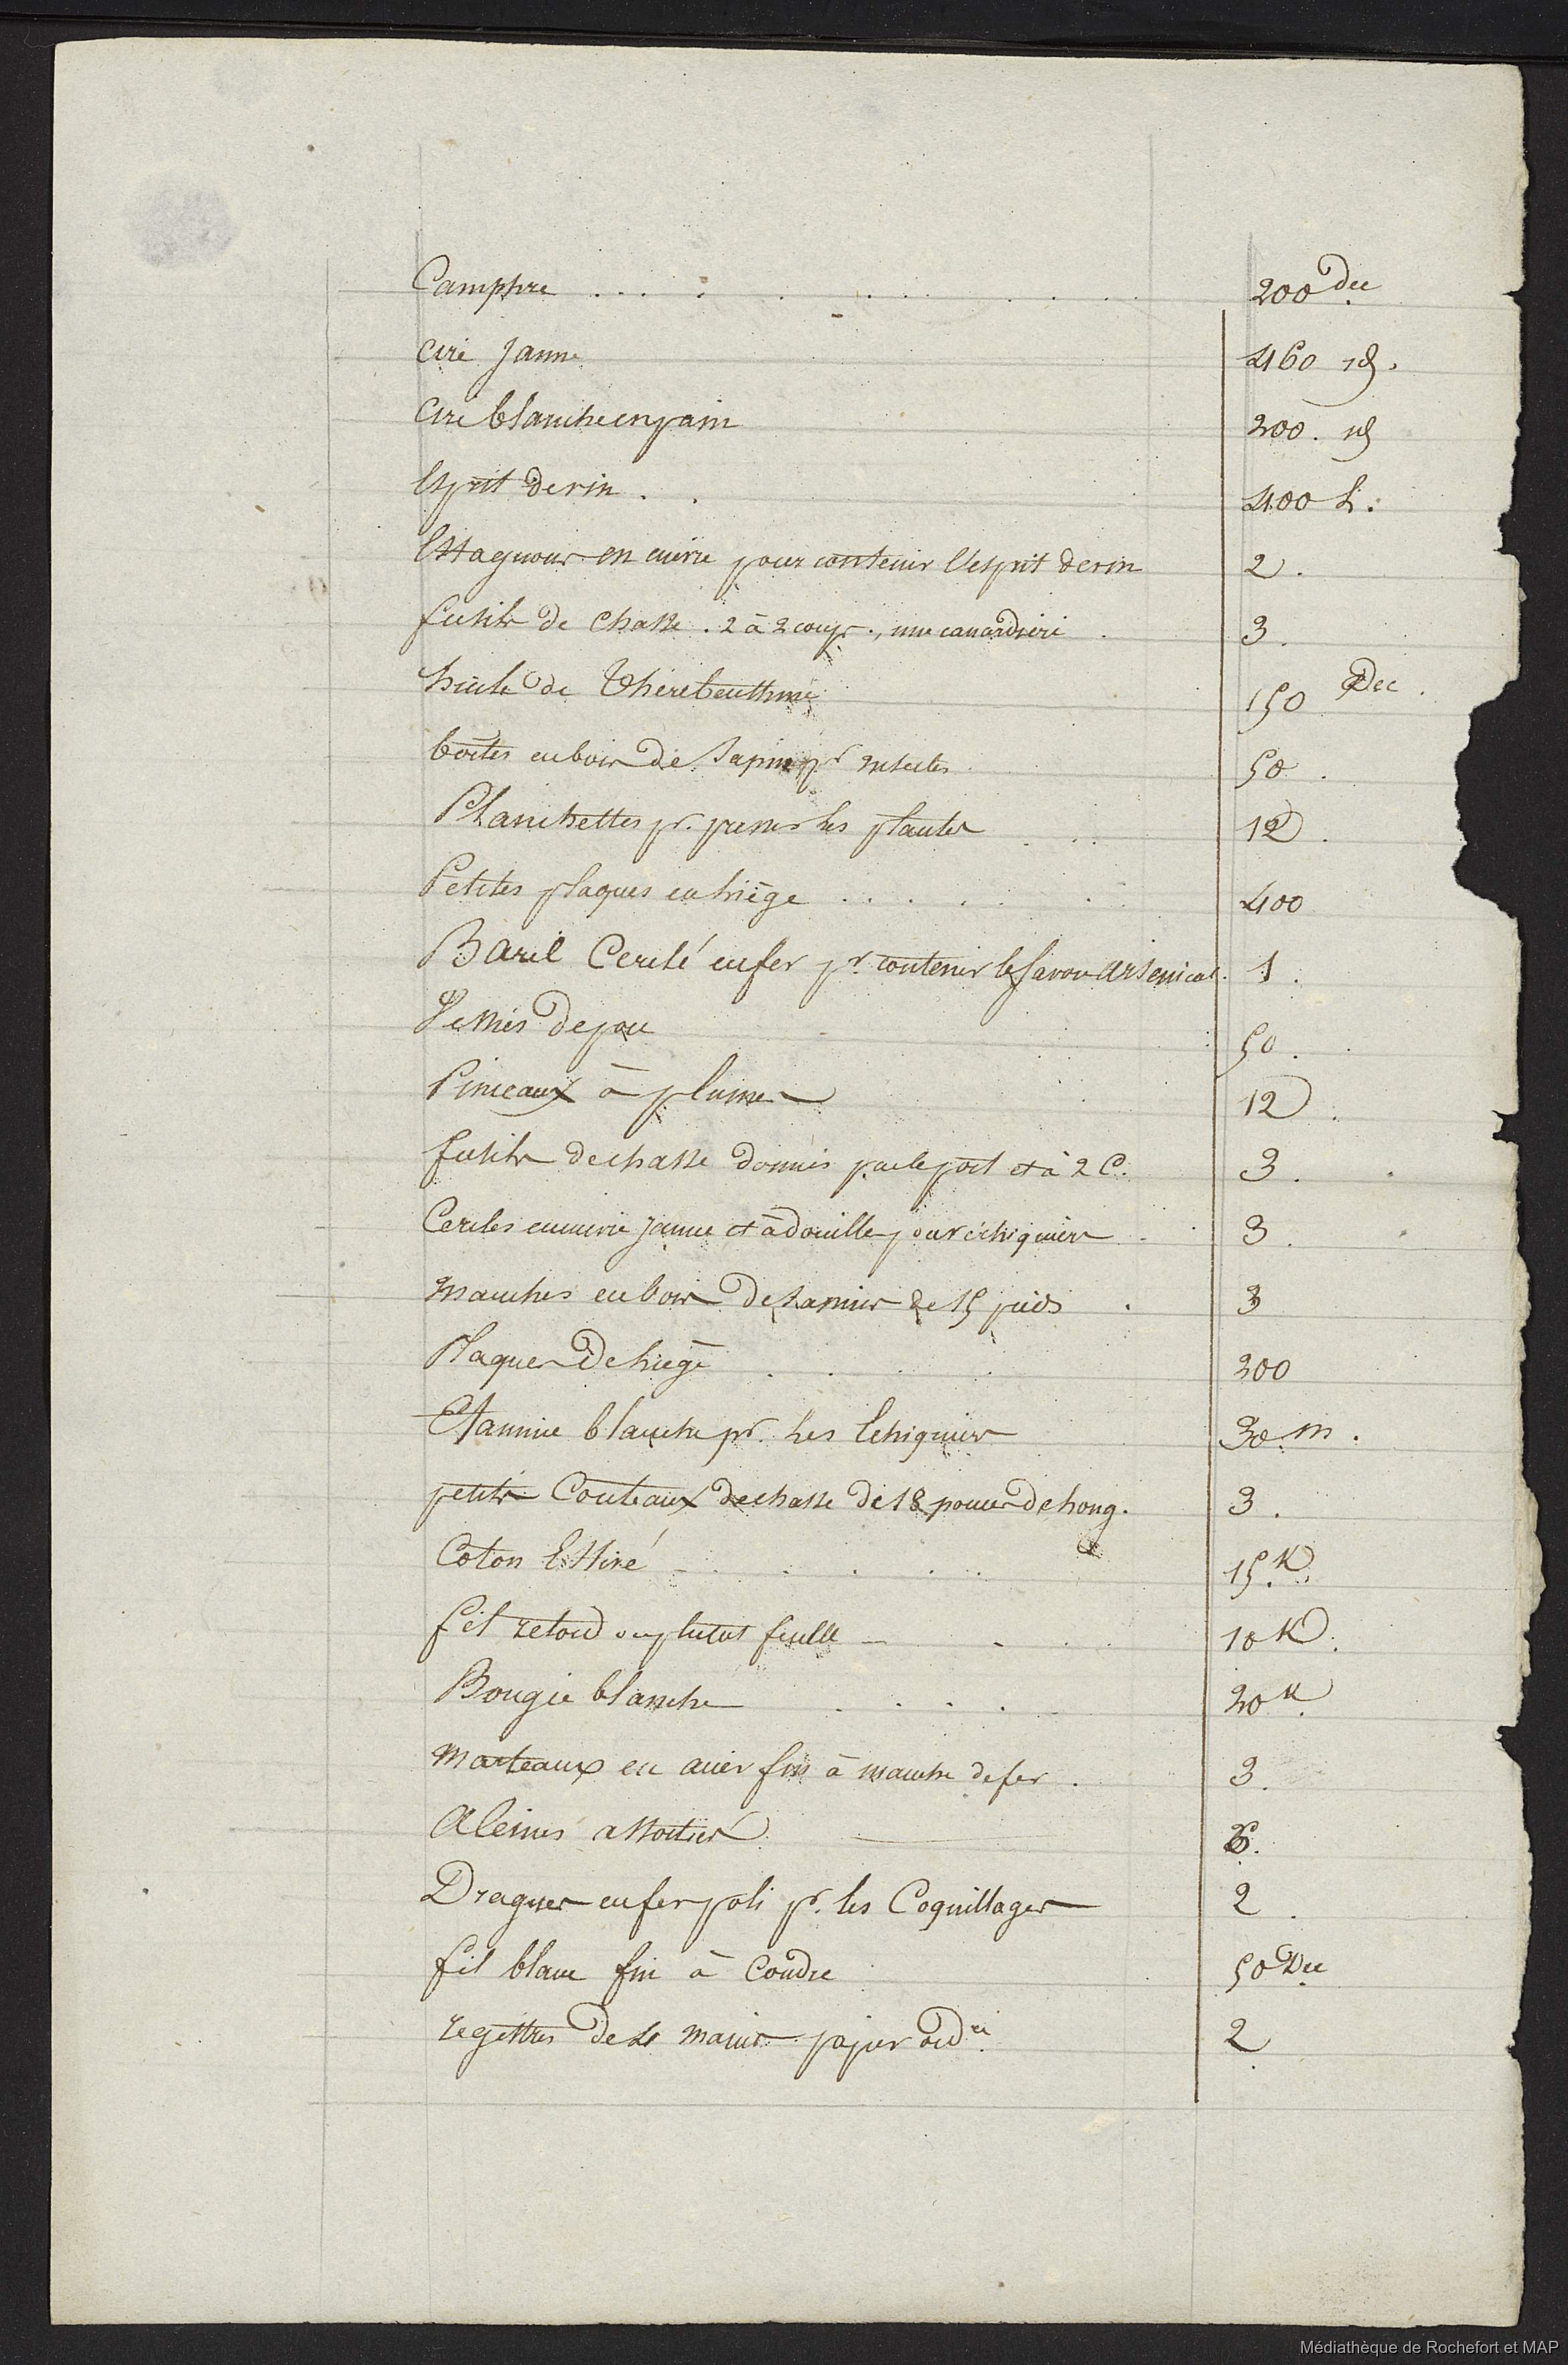 Camphre . . . . . . . . . . . 200 Dec
Cire Jaune 460 id.
Cire blanche en pain 200. id
Esprit de vin . . 400 li.
Estagnons en cuivre pour contenir l'esprit de vin 2.
fusils de chasse . 2 à 2 coups ., une canardière . 3.
huile de Thérébenthine 150 Dec.
boîtes en bois de Sapin pr insectes 50.
Planchettes pr. presser les plantes . . . 12.
Petites plaques en liège . . . . . . 400
Baril Cerclé en fer pr. contenir le Savon arsenical. 1.
50.
Pinceaux à plumes 12.
fusils de chasse donnés par le port et à 2 C. 3.
Cercles en cuivre jaune et à douille pour échiquiers . 3.
manches en bois de de 15 pieds . 3
Plaques de liège . . . . 200
Etamine blanche pr. les Echiquiers 30 m.
petits Couteaux de chasse de 18 pouces de long. 3.
Coton Estiré - . . . . . 15 K.
fil retord ou plutot ficelle - . . . 10 K.
Bougie blanche . . . . 20 K.
Marteaux en acier fin à manche de fer . 3.
Aleines assorties 6.
Dragues en fer poli pr. les Coquillages 2.
fil blanc fin à Coudre 50 Dec
registres de 4 mains papier ordre. 2.
Médiathèque de Rochefort et MAP